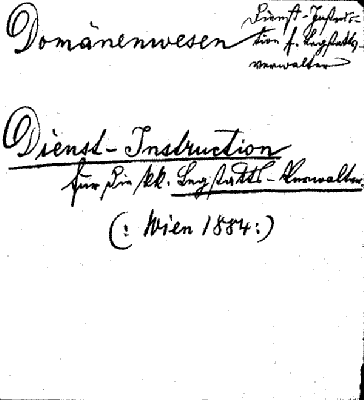 Domänenwesen
Dienst-Instruc-
tion f. Legstatts-
verwalter
Dienst-Instruction
für die kk. Legstatts-Verwalter
(: Wien 1884:)